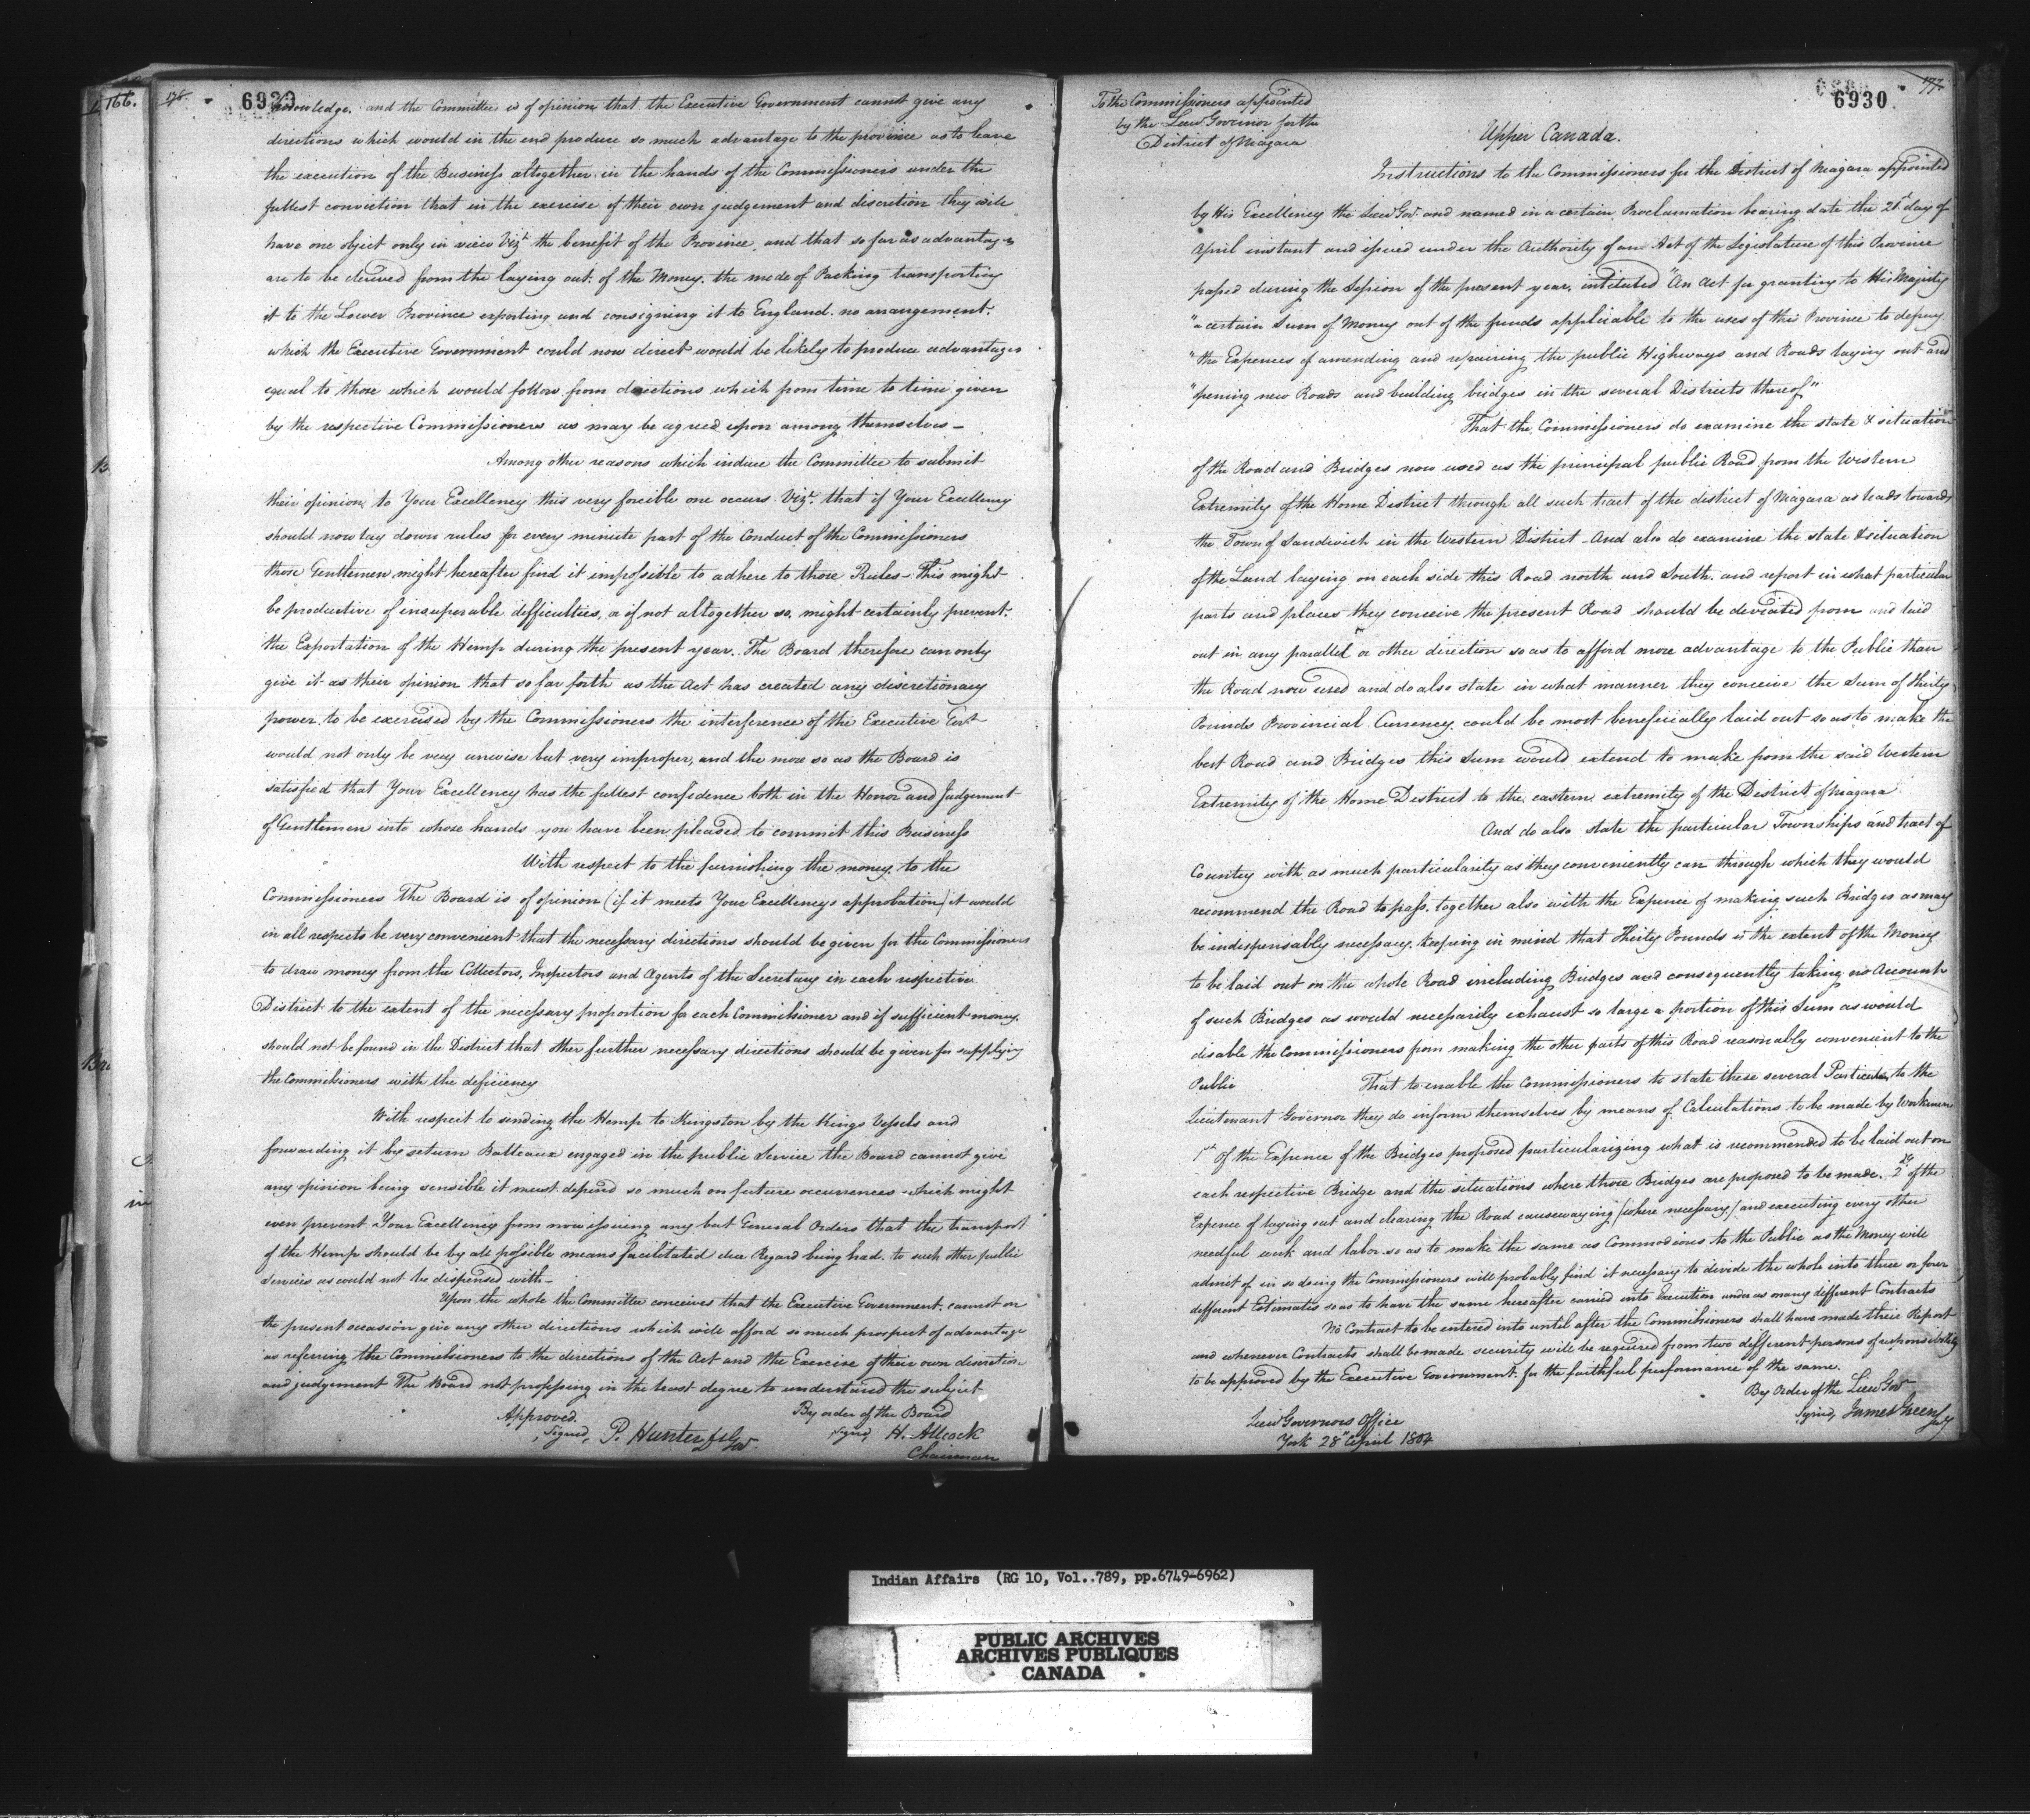 166.
176.
6929
knowledge. and the Committee is of opinion that the Executive Government cannot give any
directions which would in the end produce so much advantage to the province as to leave
the execution of the Business altogether in the hands of the Commissioners under the
fullest conviction that in the exercise of their own judgement and discretion they will
have one object only in view Vizt the benefit of the Province, and that so far as advantages
are to be derived from the laying out of the Money. the mode of Packing transporting
it to the Lower Province exporting and consigning it to England. no arrangement.
which the Executive Government could now direct would be likely to produce advantages
equal to those which would follow from directions which from time to time given
by the respective Commissioners as may be agreed upon among themselves—
Among other reasons which induce the Committee to submit
their opinion to Your Excellency this very forcible one occurs Vizt. that if Your Excellency
should now lay down rules for every minute part of the Conduct of the Commissioners
those Gentlemen might hereafter find it impossible to adhere to those Rules—This might
be productive of insuperable difficulties, or if not altogether so, might certainly prevent.
the Exportation of the Hemp during the present year. The Board therefore can only
give it as their opinion that so far forth as the Act has created any discretionary
power to be exercised by the Commissioners the interference of the Executive Govt
would not only be very unwise but very improper, and the more so as the Board is
satisfied that Your Excellency has the fullest confidence both in the Honor and Judgement
of Gentlemen into whose hands you have been pleased to commit this Business
With respect to the furnishing the money to the
Commissioners The Board is of opinion (if it meets Your Excellencys approbation) it would
in all respects be very convenient that the necessary directions should be given for the Commissioners
to draw money from the Collectors, Inspectors and Agents of the Secretary in each respective
District to the extent of the necessary proportion for each Commissioner and if sufficient money
should not be found in the District that other further necessary directions should be given for supplying
the Commissioners with the deficiency
With respect to sending the Hemp to Kingston by the Kings Vessels and
forwarding it by return Batteaux engaged in the public Service the Board cannot give
any opinion being sensible it must depend so much on future occurrences which might
even prevent Your Excellency from now issuing any but General Orders that the transport
of the Hemp should be by all possible means facilitated due Regard being had to such other public
Services as could not be dispensed with—
Upon the whole the Committee conceives that the Executive Government cannot on
the present occasion give any other directions which will afford so much prospect of advantage
as referring the Commissioners to the directions of the Act and the Exercise of their own discretion
and judgement The Board not professing in the least degree to understand the subject
Approved. By order of the Board
Signed, P. Hunter Lt Gov. Signd H. Allcock
Chairman
177.
6930
To the Commissioners appointed
by the Lieut Governor for the
District of Niagara
Upper Canada.
Instructions to the Commissioners for the District of Niagara appointed
by His Excellency the Lieut Govr. and named in a certain Proclamation bearing date the 21st day of
April instant and issued under the Authority of an Act of the Legislature of this Province
passed during the Session of the present year, intituled "An Act for granting to His Majesty
"a certain Sum of Money out of the funds applicable to the uses of this Province to defray
"the Expences of amending and repairing the public Highways and Roads laying out and
"opening new Roads and building bridges in the several Districts thereof"
That the Commissioners do examine the state & situation
of the Road and Bridges now used as the principal public Road from the Western
Extremity of the Home District through all such tract of the district of Niagara as leads towards
the Town of Sandwich in the Western District—And also do examine the state & situation
of the Land laying on each side this Road north and South. and report in what particular
parts and places they conceive the present Road should be deviated from and laid
out in any parallel or other direction so as to afford more advantage to the Public than
the Road now used and do also state in what manner they conceive the Sum of thirty
Pounds Provincial Currency could be most beneficially laid out so as to make the
best Road and Bridges this Sum would extend to make from the said Western
Extremity of the Home District to the eastern extremity of the District of Niagara
And do also state the particular Townships and tract of
Country with as much particularity as they conveniently can through which they would
recommend the Road to pass, together also with the Expence of making such Bridges as may
be indispensably necessary. Keeping in mind that Thirty Pounds is the extent of the Money
to be laid out on the whole Road including Bridges and consequently taking no Account
of such Bridges as would necessarily exhaust so large a portion of this Sum as would
disable the Commissioners from making the other parts of this Road reasonably convenient to the
Public That to enable the Commissioners to state these several Particulars to the
Lieutenant Governor they do inform themselves by means of Calculations to be made by Workmen
1st Of the Expence of the Bridges proposed particularizing what is recommended to be laid out on
each respective Bridge and the situations where those Bridges are proposed to be made. 2d Of the
Expence of laying out and clearing the Road causewaying (where necessary) and executing every other
needful work and labor. so as to make the same as Commodious to the Public as the Money will
admit of in so doing the Commissioners will probably find it necessary to divide the whole into three or four
different Estimates so as to have the same hereafter carried into Execution under as many different Contracts
No Contract to be entered into until after the Commissioners shall have made their Report
and whenever Contracts shall be made security will be required from two different persons of responsibility
to be approved by the Executive Government for the faithful performance of the same.
By Order of the Lieut Govr
Signd, James Green Sy
Lieut Governors Office
York 28th April 1804
Indian Affairs (RG 10, Vol..789, pp.6749-6962)
PUBLIC ARCHIVES
ARCHIVES PUBLIQUES
CANADA